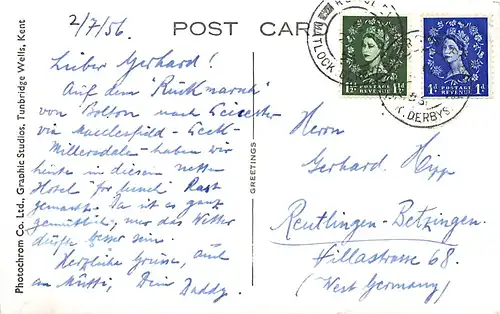 2/7/56.
POST CARD
Lieber Gerhard!
Auf dem "Rückmarsch"
von Bolton nach Leicester
via Macclesfield - Leek -
Millersdale - haben wir
heute in diesem netten
Hotel for lunch Rast
gemacht. Da ist es ganz
gemütlich, nur das Wetter
dürfte besser sein.
Herzliche Grüsse, auch
an Mutti, Dein Daddy.
Photochrom Co. Ltd., Graphic Studios, Tunbridge Wells, Kent
GREETINGS
MATLOCK
DERBYS.
POSTAGE
REVENUE
1½d
POSTAGE
REVENUE
1d 1d
Herrn
Gerhard Hipp
Reutlingen-Betzingen.
Hillastrasse 68.
(West Germany)